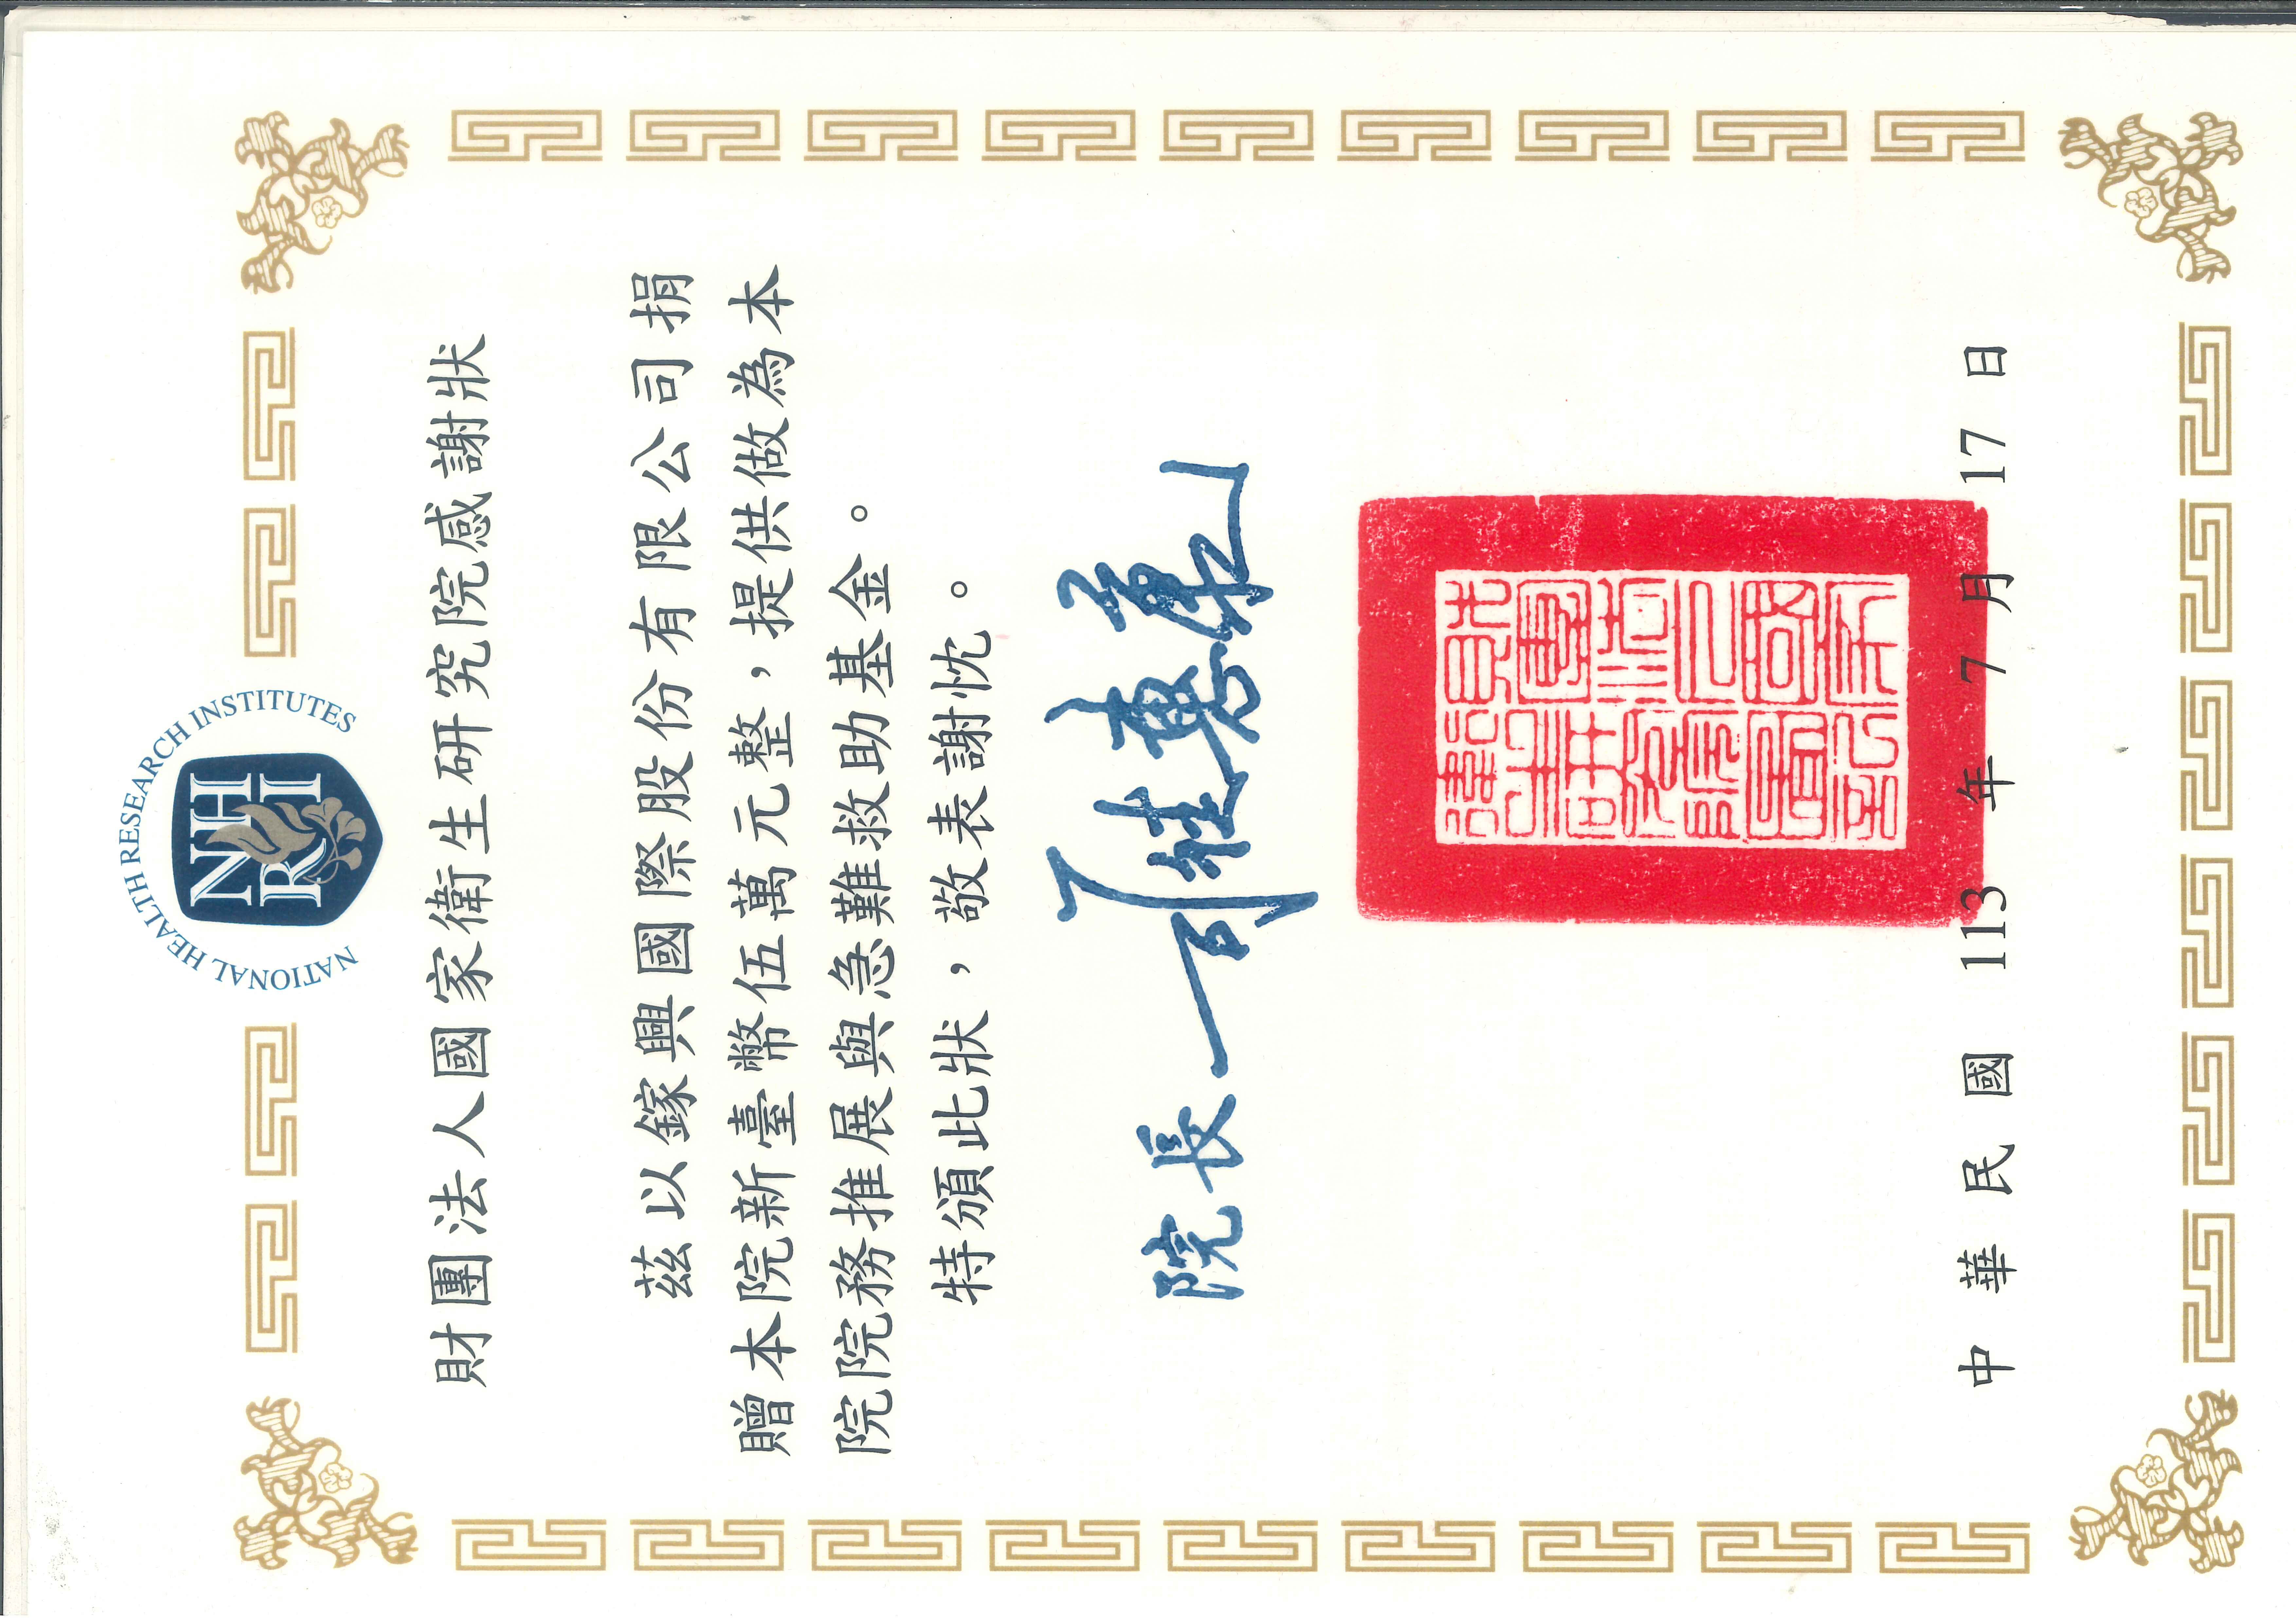 NATIONAL HEALTH RESEARCH INSTITUTES
NH
RI
財團法人國家衛生研究院感謝狀
茲以鎵興國際股份有限公司捐
贈本院新臺幣伍萬元整，提供做為本
院院務推展與急難救助基金。
特頒此狀，敬表謝忱。
院長 司徒惠康
中華民國 113 年 7 月 17 日